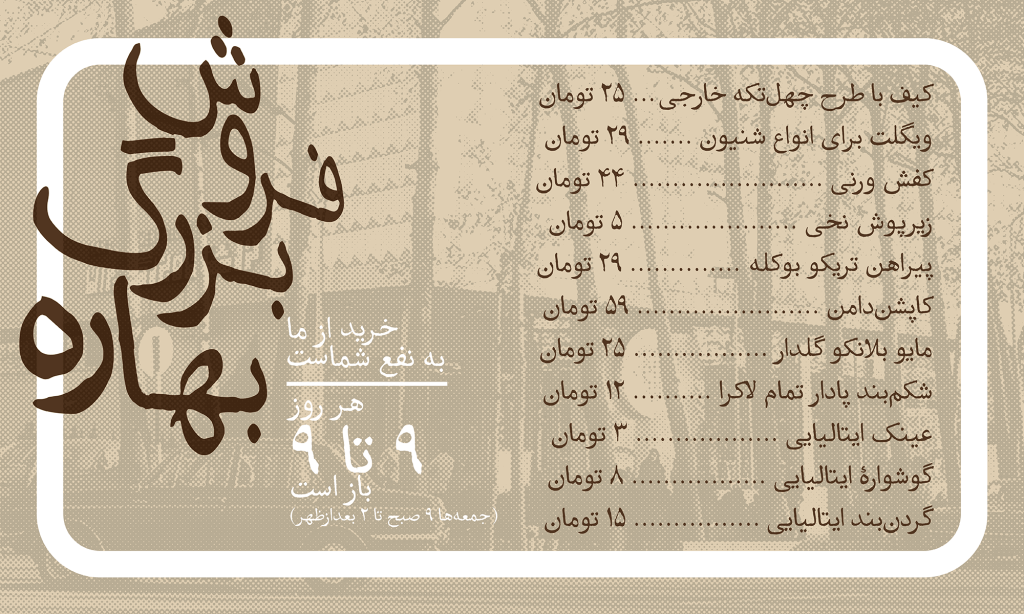 فروش
بزرگ
بهاره
کیف با طرح چهل‌تکه خارجی ... ۲۵ تومان
ویگلت برای انواع شنیون ....... ۲۹ تومان
کفش ورنی ........................ ۴۴ تومان
زیرپوش نخی ..................... ۵ تومان
پیراهن تریکو بوکله .............. ۲۹ تومان
کاپشن‌دامن ....................... ۵۹ تومان
مایو بلانکو گلدار ................. ۲۵ تومان
شکم‌بند پادار تمام لاکرا .......... ۱۲ تومان
عینک ایتالیایی .................. ۳ تومان
گوشوارهٔ ایتالیایی ................. ۸ تومان
گردن‌بند ایتالیایی ................ ۱۵ تومان
خرید از ما
به نفع شماست
هر روز
۹ تا ۹
باز است
(جمعه‌ها ۹ صبح تا ۲ بعدازظهر)